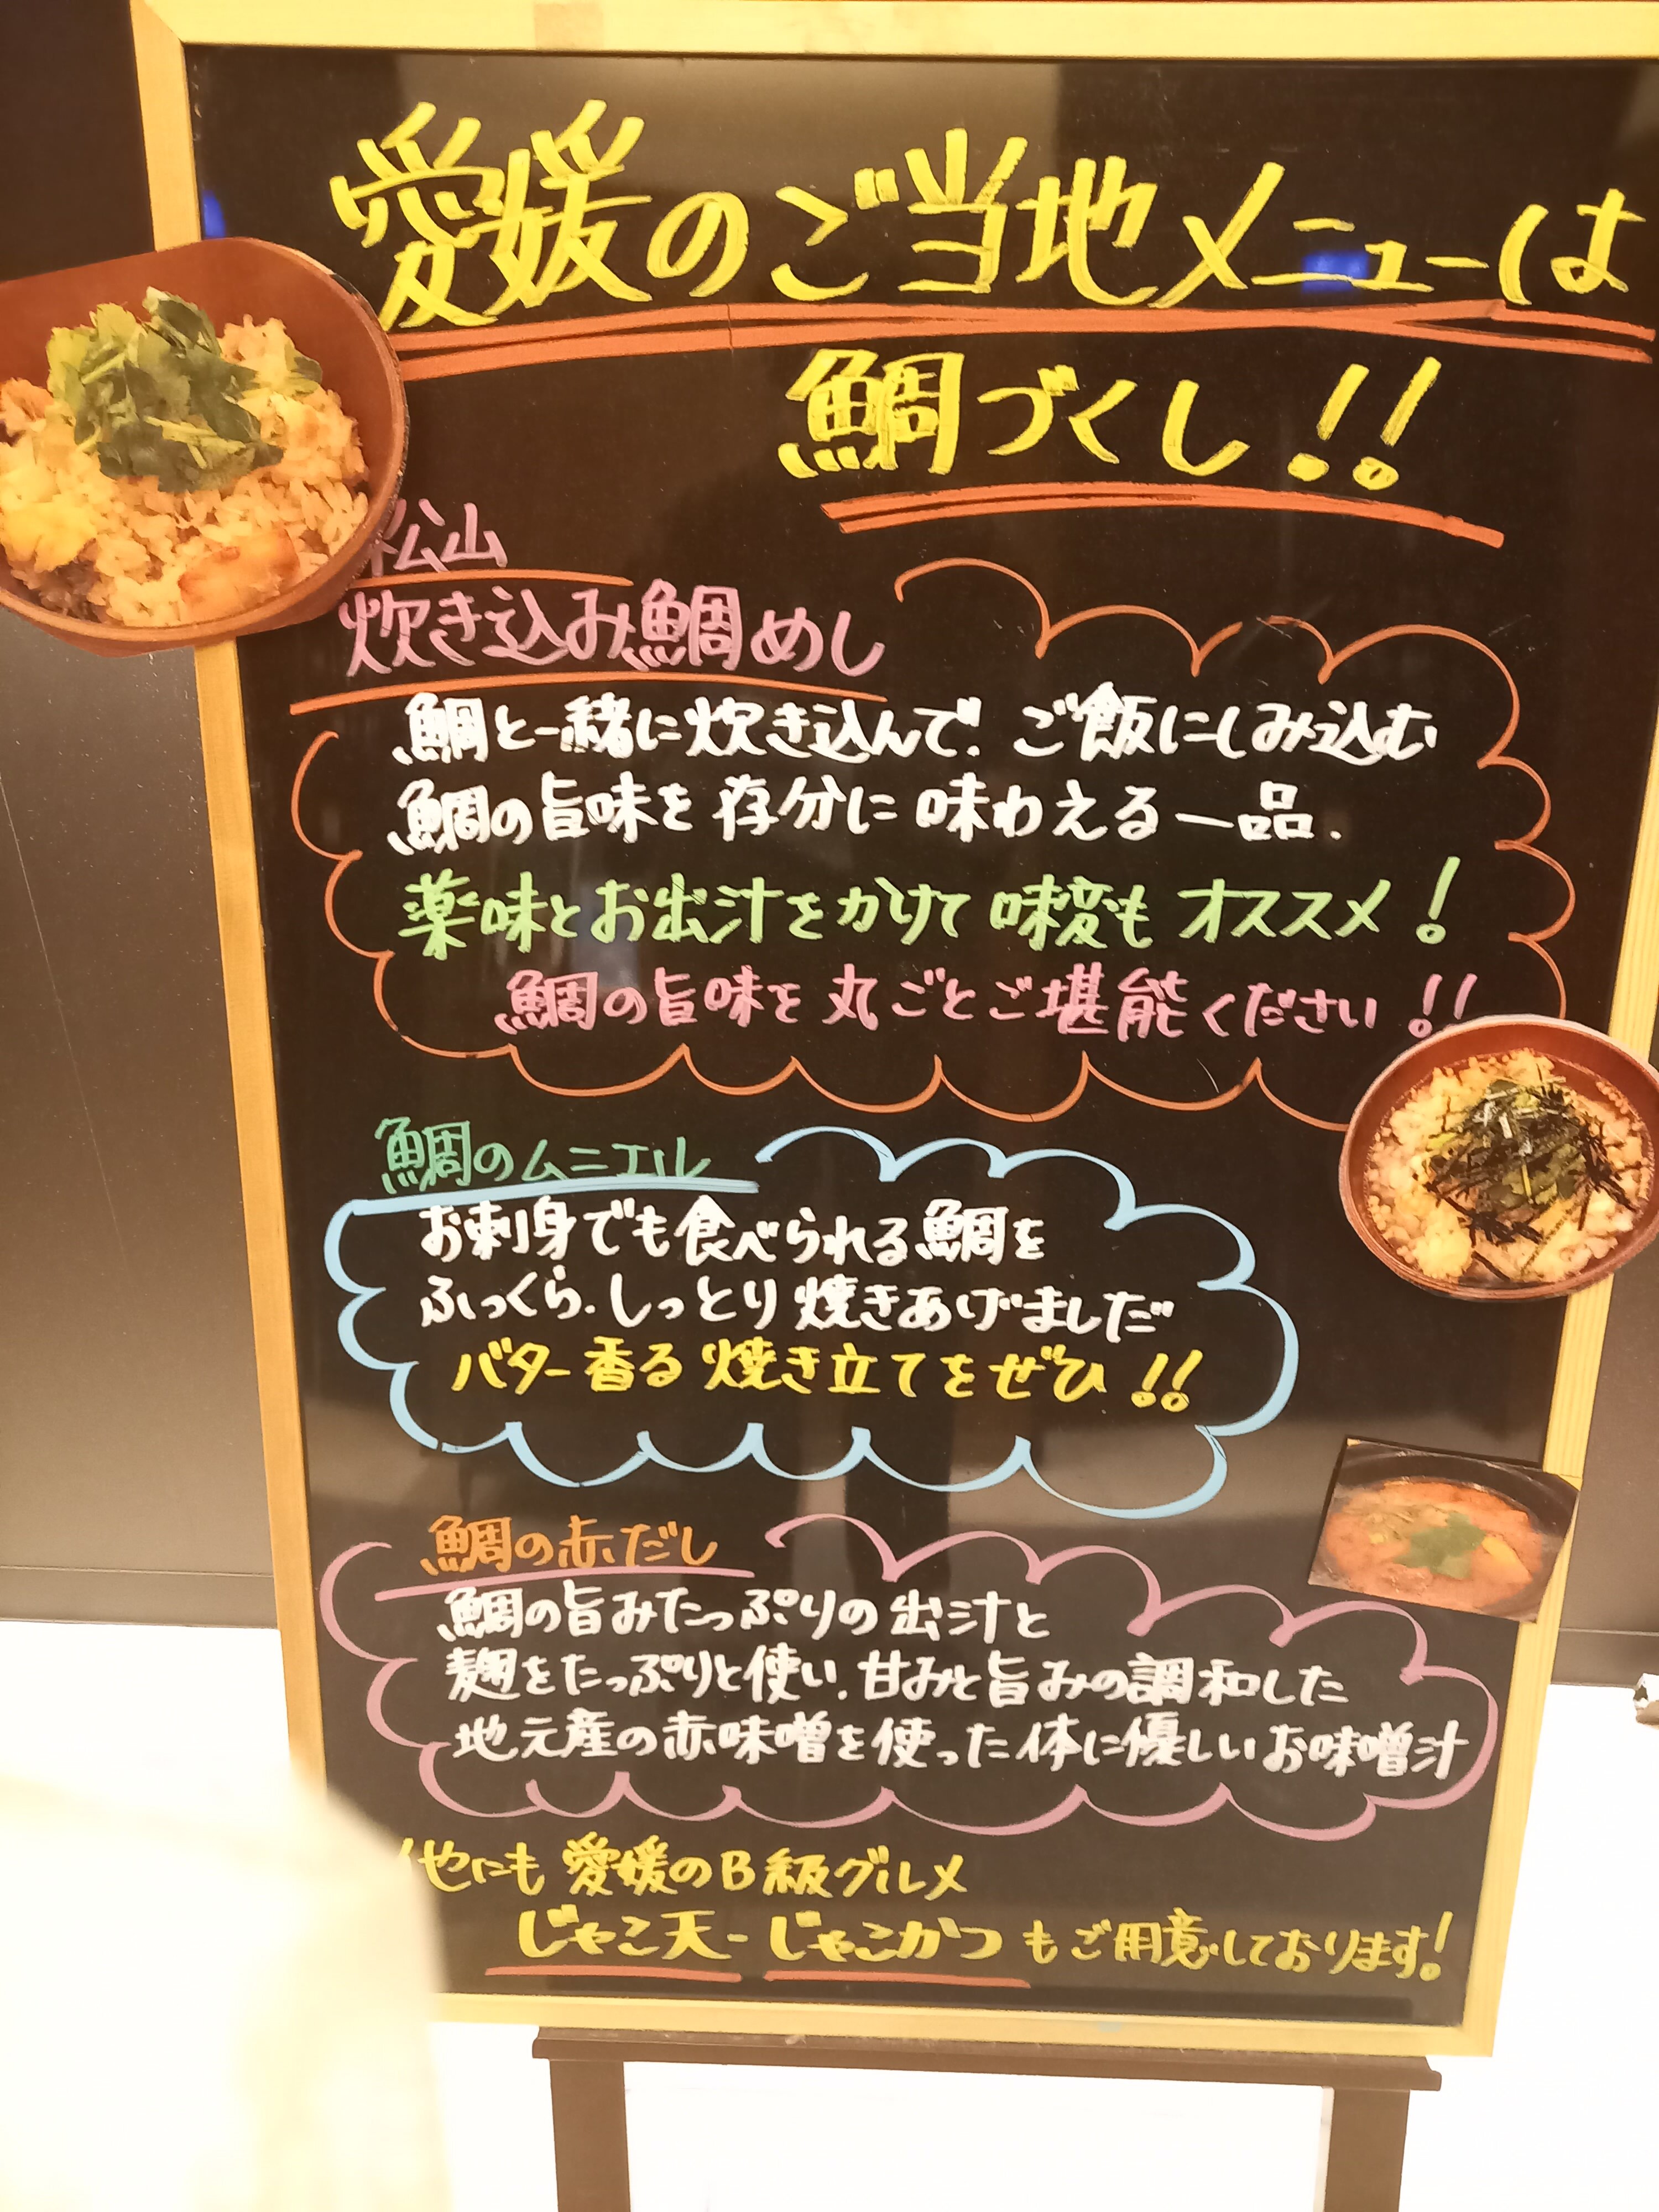 愛媛のご当地メニューは
鯛づくし!!
松山
炊き込み鯛めし
鯛と一緒に炊き込んで、ご飯にしみ込む
鯛の旨味を存分に味わえる一品.
薬味とお出汁をかけて味変もオススメ!
鯛の旨味を丸ごとご堪能ください!!
鯛のムニエル
お刺身でも食べられる鯛を
ふっくら、しっとり焼きあげました
バター香る焼き立てをぜひ!!
鯛の赤だし
鯛の旨みたっぷりの出汁と
麹をたっぷりと使い、甘みと旨みの調和した
地元産の赤味噌を使った体に優しいお味噌汁
他にも愛媛のB級グルメ
じゃこ天-じゃこかつもご用意しております!